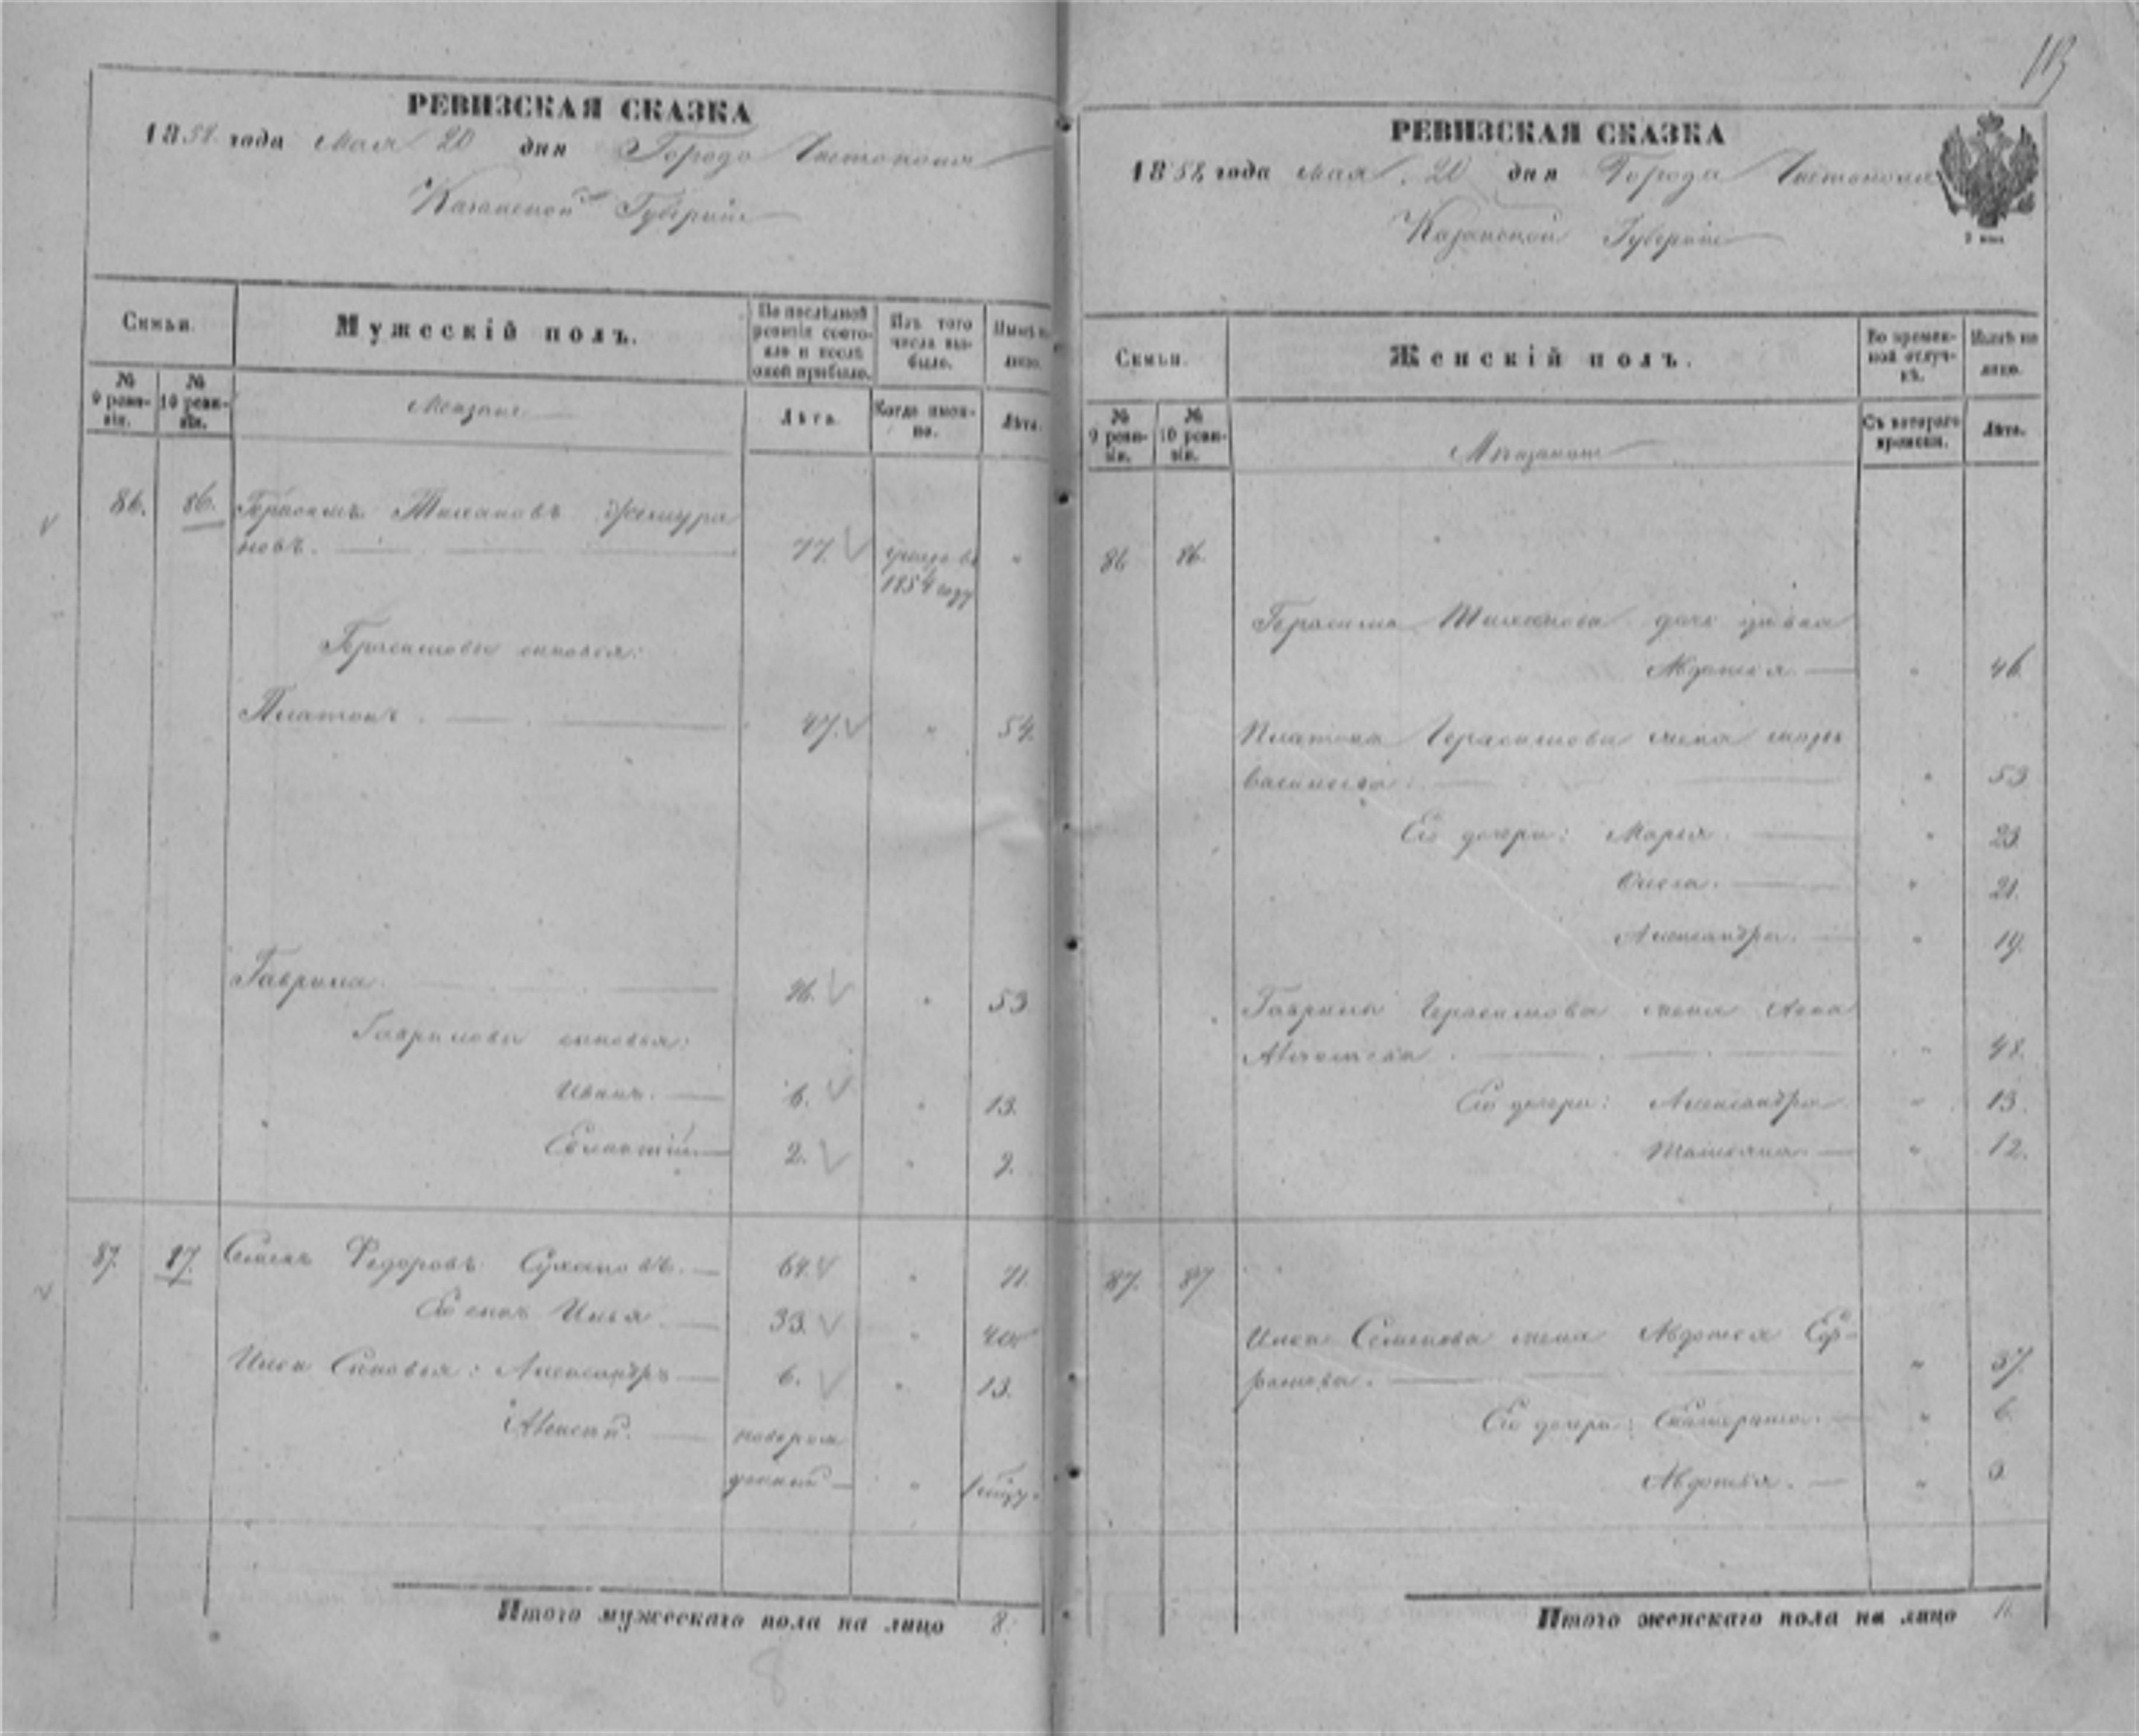 113
РЕВИЗСКАЯ СКАЗКА
1858 года Мая 20 дня Города Чистополя
Казанской Губернии
Семьи.
Мужескій полъ.
По послѣдней ревизіи состояло и послѣ оной прибыло.
Изъ того числа выбыло.
Нынѣ на лицо.
№ 9 ревизіи.
№ 10 ревизіи.
Лѣта.
Когда именно.
Лѣта.
86. 86. Герасимъ Тихановъ
новъ. 77. 1854 году
Герасимовы сыновья:
Платонъ. 47. 54.
Гаврила 46. 53
Гавриловы сыновья:
Иванъ. 6. 13.
2. 9.
87. 87. Семенъ Федоровъ Сухановъ. 64. 71.
Его сынъ Илья 33. 40
Ильи Сыновья: Александръ 6. 13.
Алексѣй. новорож
денный
Итого мужескаго пола на лицо 8.
РЕВИЗСКАЯ СКАЗКА
1858 года Мая 20 дня Города Чистополя
Казанской Губернии
Семьи.
Женскій полъ.
Во временной отлучкѣ.
Нынѣ на лицо.
№ 9 ревизіи.
№ 10 ревизіи.
Съ котораго времени.
Лѣта.
86 86.
Герасима Тиханова дочь
Авдотья 46
Платона Герасимова жена
Васильева 53
Его дочери: Марья 23.
Ольга. 21.
Александра. 19.
Гаврилы Герасимова жена Анна
48.
Его дочери: Александра 13.
Татьяна 12.
87. 87
Ильи Семенова жена Авдотья Еф-
ремова. 37.
Его дочери: Екатерина. 6.
Авдотья. 3
Итого женскаго пола на лицо 11.